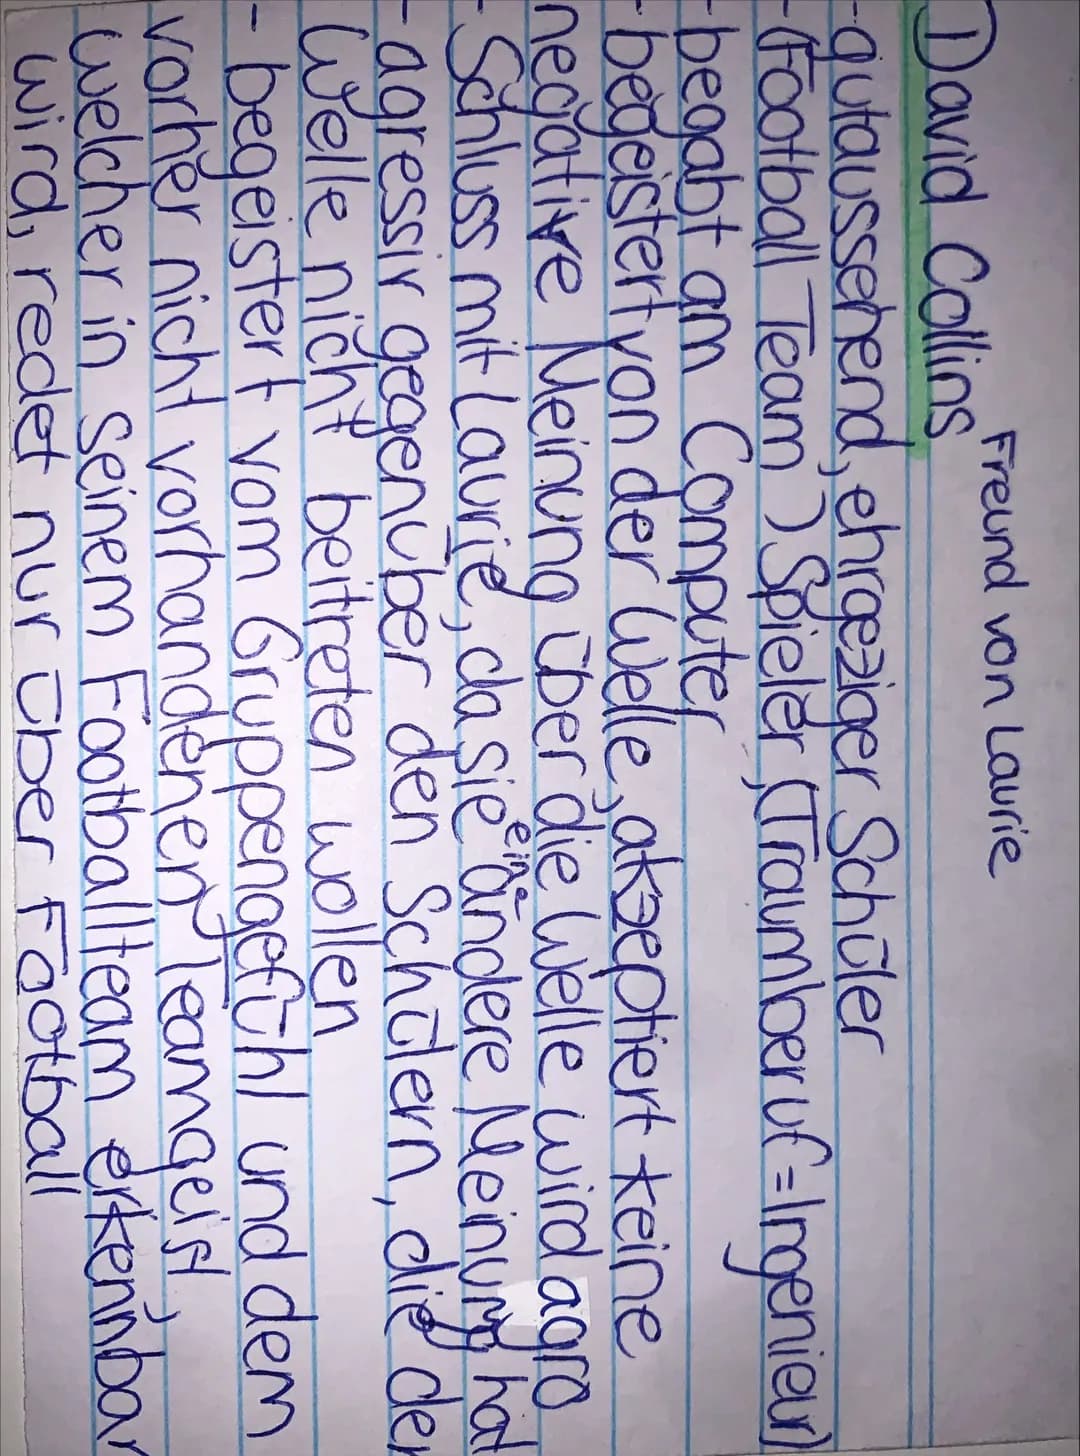 Freund von Laurie
1) David Collins
- gutaussehend, ehrgeziger Schüler
- (Football Team) Spieler, (Traumberuf = Ingenieur)
- begabt am Computer
- begeistert von der Welle, akzeptiert keine
negative Meinung über die Welle wird agro
- Schluss mit Laurie, da sie eine andere Meinung hat
- agressiv gegenüber den Schülern, die der
Welle nicht beitreten wollen
- begeistert vom Gruppengefühl und dem
vorher nicht vorhandenen Teamgeist,
welcher in seinem Footballteam erkennbar
wird, redet nur über Football